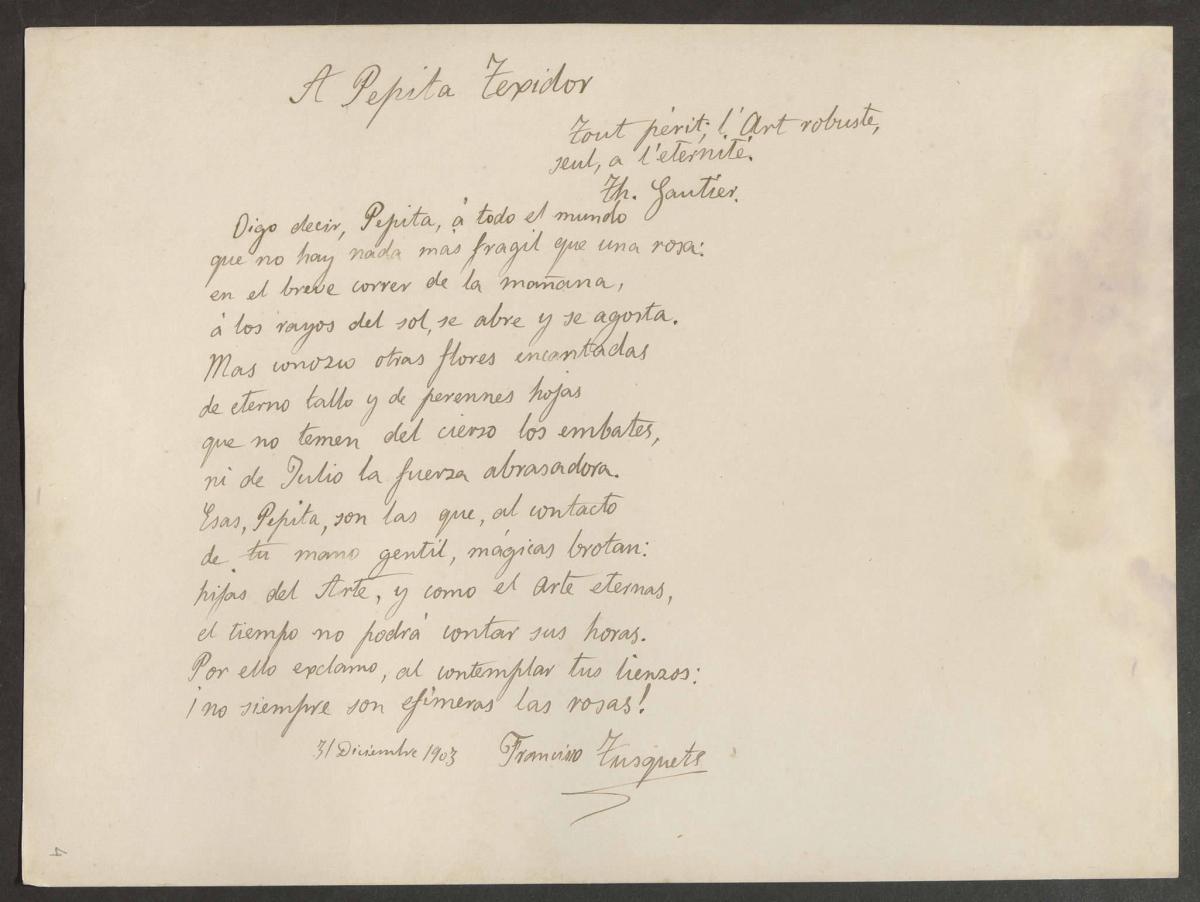 A Pepita Texidor
Tout périt; l'Art robuste,
seul, a l'eternité.
Th. Gautier.
Oigo decir, Pepita, á todo el mundo
que no hay nada más fragil que una rosa:
en el breve correr de la mañana,
á los rayos del sol, se abre y se agosta.
Mas conozco otras flores encantadas
de eterno tallo y de perennes hojas
que no temen del cierzo los embates,
ni de Julio la fuerza abrasadora.
Esas, Pepita, son las que, al contacto
de tu mano gentil, mágicas brotan:
hijas del Arte, y como el arte eternas,
el tiempo no podrá contar sus horas.
Por ello exclamo, al contemplar tus lienzos:
¡no siempre son efímeras las rosas!
31 Diciembre 1903 Francisco Tusquets
4